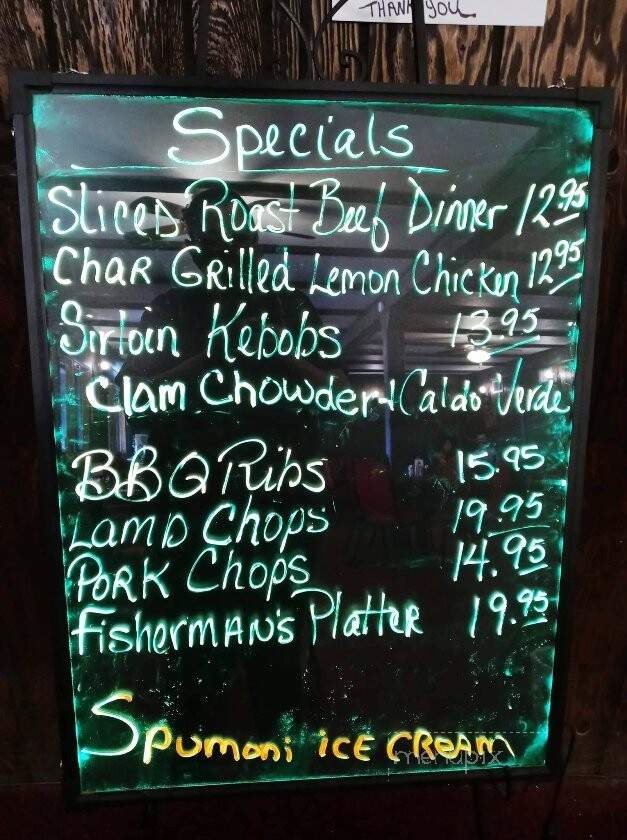 THANK YOU
Specials
Sliced Roast Beef Dinner 12.95
Char Grilled Lemon Chicken 12.95
Sirloin Kebobs 13.95
Clam Chowder + Caldo Verde
BBQ Ribs 15.95
Lamb Chops 19.95
Pork Chops 14.95
Fisherman's Platter 19.95
Spumoni ice cream
menupix